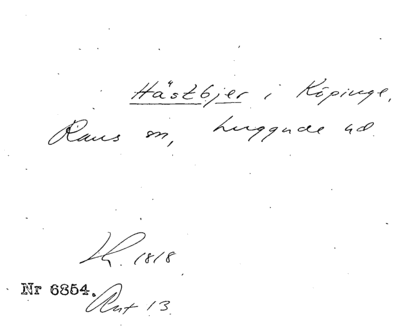 Hästbjer i Köpinge,
Raus sn, Luggude hd
Lh. 1818
Nr 6854.
Ant 13